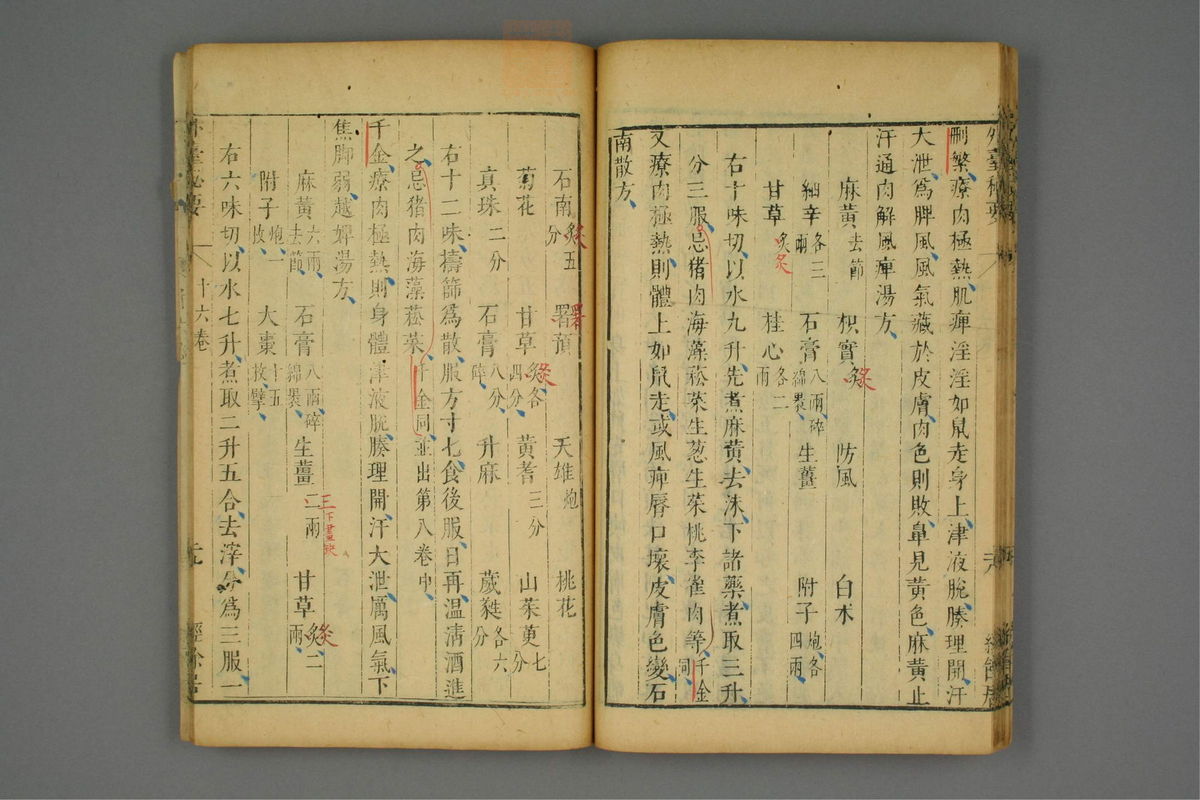 外臺秘要
刪繁療肉極熱肌痺淫淫如鼠走身上津液脫腠理開汗
大泄為脾風風氣藏於皮膚肉色則敗鼻見黃色麻黃止
汗通肉解風痺湯方
麻黃去節 枳實炙 防風 白朮
細辛各三兩 石膏八兩碎綿裹 生薑 附子炮各四兩
甘草炙 桂心各二兩
右十味切以水九升先煮麻黃去沫下諸藥煮取三升
分三服忌猪肉海藻菘菜生葱生菜桃李雀肉等千金同
又療肉極熱則體上如鼠走或風痺唇口壞皮膚色變石
南散方
石南炙五分 署預 天雄炮 桃花
菊花 甘草炙各四分 黃耆三分 山茱萸七分
真珠二分 石膏八分碎 升麻 葳蕤各六分
右十二味擣篩為散服方寸七食後服日再温清酒進
之忌猪肉海藻菘菜千金同並出第八卷中
千金療肉極熱則身體津液脫腠理開汗大泄厲風氣下
焦脚弱越婢湯方
麻黃六兩去節 石膏八兩碎綿裹 生薑二兩 甘草炙二兩
三下畫缺
附子炮一枚 大棗十五枚擘
右六味切以水七升煮取二升五合去滓分為三服一
外臺秘要 十六卷 經餘居